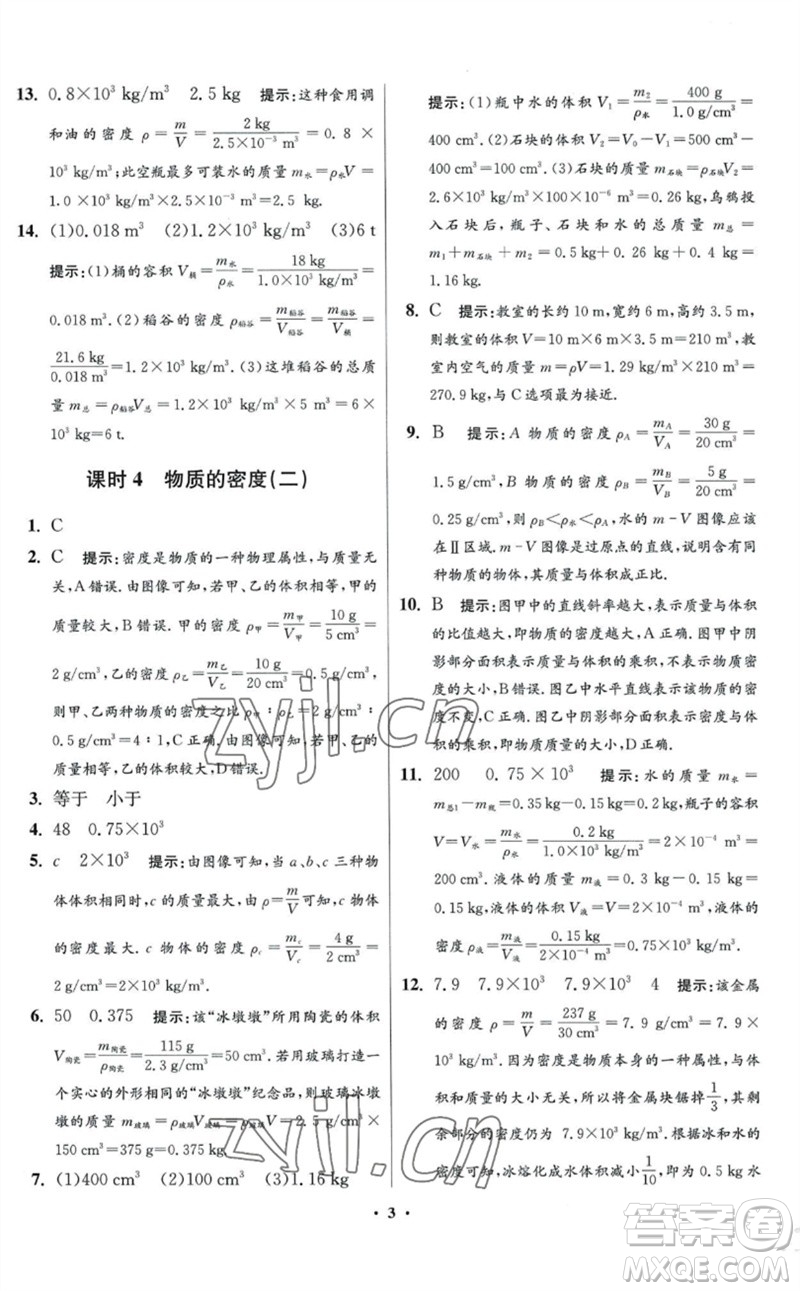 13. 0.8×10³ kg/m³ 2.5 kg 提示:这种食用调
和油的密度 ρ=m/V=2 kg/(2.5×10⁻³ m³)=0.8×
10³ kg/m³;此空瓶最多可装水的质量 m水=ρ水V=
1.0×10³ kg/m³×2.5×10⁻³ m³=2.5 kg.
14. (1)0.018 m³ (2)1.2×10³ kg/m³ (3)6 t
提示:(1)桶的容积 V桶=m水/ρ水=18 kg/(1.0×10³ kg/m³)=
0.018 m³.(2)稻谷的密度 ρ稻谷=m稻谷/V稻谷=m稻谷/V桶=
21.6 kg/0.018 m³=1.2×10³ kg/m³.(3)这堆稻谷的总质
量 m总=ρ稻谷V总=1.2×10³ kg/m³×5 m³=6×
10³ kg=6 t.
课时4 物质的密度(二)
1. C
2. C 提示:密度是物质的一种物理属性,与质量无
关,A错误.由图像可知,若甲、乙的体积相等,甲的
质量较大,B错误.甲的密度 ρ甲=m甲/V甲=10 g/5 cm³=
2 g/cm³,乙的密度 ρ乙=m乙/V乙=10 g/20 cm³=0.5 g/cm³,
则甲、乙两种物质的密度之比 ρ甲∶ρ乙=2 g/cm³∶
0.5 g/cm³=4∶1,C正确.由图像可知,若甲、乙的
质量相等,乙的体积较大,D错误.
3. 等于 小于
4. 48 0.75×10³
5. c 2×10³ 提示:由图像可知,当a、b、c三种物
体体积相同时,c的质量最大,由 ρ=m/V可知,c物体
的密度最大.c物体的密度 ρc=mc/Vc=4 g/2 cm³=
2 g/cm³=2×10³ kg/m³.
6. 50 0.375 提示:该“冰墩墩”所用陶瓷的体积
V陶瓷=m陶瓷/ρ陶瓷=115 g/(2.3 g/cm³)=50 cm³.若用玻璃打造一
个实心的外形相同的“冰墩墩”纪念品,则玻璃冰墩
墩的质量 m玻璃=ρ玻璃V玻璃=ρ玻璃V=2.5 g/cm³×
150 cm³=375 g=0.375 kg.
7. (1)400 cm³ (2)100 cm³ (3)1.16 kg
提示:(1)瓶中水的体积 V₁=m₂/ρ水=400 g/(1.0 g/cm³)=
400 cm³.(2)石块的体积 V₂=V₀-V₁=500 cm³-
400 cm³=100 cm³.(3)石块的质量 m石块=ρ石块V₂=
2.6×10³ kg/m³×100×10⁻⁶ m³=0.26 kg,乌鸦投
入石块后,瓶子、石块和水的总质量 m总=
m₁+m石块+m₂=0.5 kg+0.26 kg+0.4 kg=
1.16 kg.
8. C 提示:教室的长约10 m,宽约6 m,高约3.5 m,
则教室的体积 V=10 m×6 m×3.5 m=210 m³,教
室内空气的质量 m=ρV=1.29 kg/m³×210 m³=
270.9 kg,与C选项最为接近.
9. B 提示:A物质的密度 ρA=mA/VA=30 g/20 cm³=
1.5 g/cm³,B物质的密度 ρB=mB/VB=5 g/20 cm³=
0.25 g/cm³,则 ρB<ρ水<ρA,水的m-V图像应该
在Ⅱ区域.m-V图像是过原点的直线,说明含有同
种物质的物体,其质量与体积成正比.
10. B 提示:图甲中的直线斜率越大,表示质量与体积
的比值越大,即物质的密度越大,A正确.图甲中阴
影部分面积表示质量与体积的乘积,不表示物质密
度的大小,B错误.图乙中水平直线表示该物质的密
度不变,C正确.图乙中阴影部分面积表示密度与体
积的乘积,即物质质量的大小,D正确.
11. 200 0.75×10³ 提示:水的质量 m水=
m总1-m瓶=0.35 kg-0.15 kg=0.2 kg,瓶子的容积
V=V水=m水/ρ水=0.2 kg/(1.0×10³ kg/m³)=2×10⁻⁴ m³=
200 cm³.液体的质量 m液=0.3 kg-0.15 kg=
0.15 kg,液体的体积 V液=V=2×10⁻⁴ m³,液体的
密度 ρ液=m液/V液=0.15 kg/(2×10⁻⁴ m³)=0.75×10³ kg/m³.
12. 7.9 7.9×10³ 7.9×10³ 4 提示:该金属
的密度 ρ=m/V=237 g/30 cm³=7.9 g/cm³=7.9×
10³ kg/m³,因为密度是物质本身的一种属性,与质量、
体积和形状的大小无关,所以将金属块锯掉1/3,其剩
余部分的密度仍为7.9×10³ kg/m³.根据冰和水的
密度可知,冰熔化成水体积减小1/10,即为0.5 kg水
• 3 •
zyjl.cn
zyjl.cn
答案卷
MXQE.COM